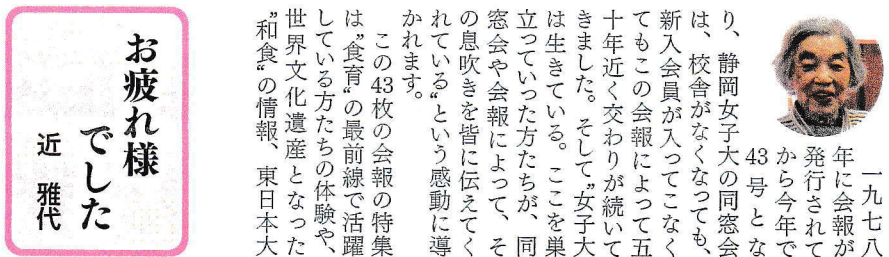 お疲れ様
でした
近 雅代
一九七八
年に会報が
発行されて
から今年で
43号とな
り、静岡女子大の同窓会
は、校舎がなくなっても、
新入会員が入ってこなく
てもこの会報によって五
十年近く交わりが続いて
きました。そして〝女子大
は生きている。ここを巣
立っていった方たちが、同
窓会や会報によって、そ
の息吹きを皆に伝えてく
れている〟という感動に導
かれます。
この43枚の会報の特集
は〝食育〟の最前線で活躍
している方たちの体験や、
世界文化遺産となった
〝和食〟の情報、東日本大